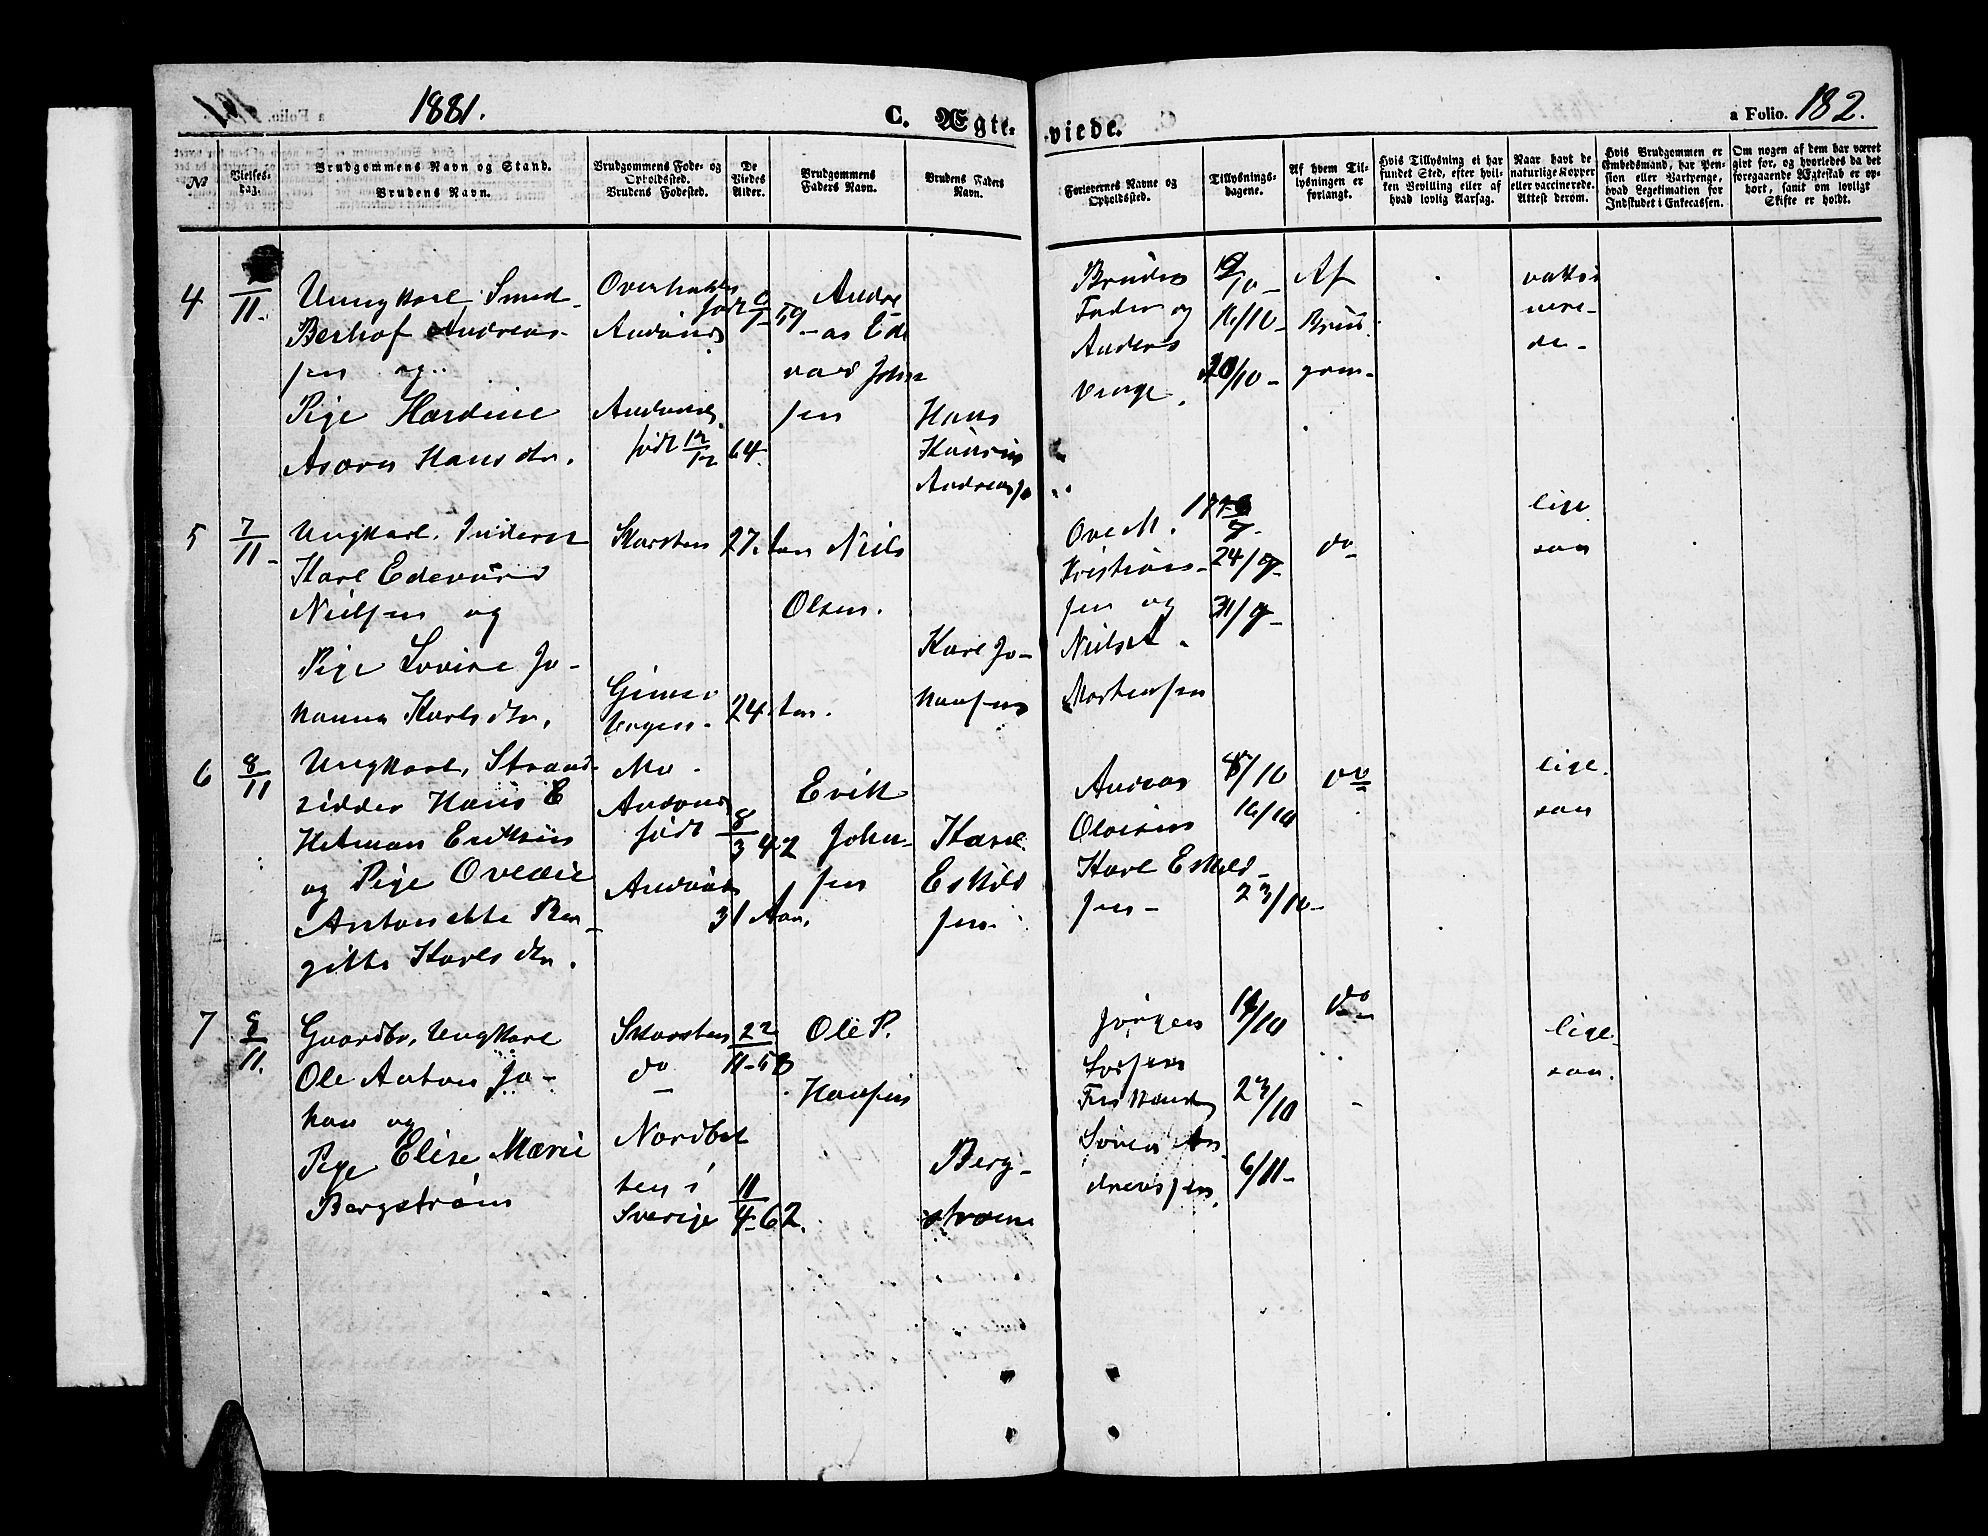 1881.
C. Ægte-
viede.
a Folio. 182.
No
Vielses-
dag.
Brudgommens Navn og Stand.
Brudens Navn.
Brudgommens Føde- og
Opholdssted.
Brudens Fødested.
De
Viedes
Alder.
Brudgommens
Faders Navn.
Brudens Faders
Navn.
Forlovernes Navne og
Opholdssted.
Tillysnings-
dagene.
Af hvem Til-
lysningen er
forlangt.
Hvis Tillysning ei har
fundet Sted, efter hvil-
ken Bevilling eller af
hvad lovlig Aarsag.
Naar havt de
naturlige Kopper
eller vaccinerede.
Attest derom.
Hvis Brudgommen er
Embedsmand, har Pen-
sion eller Vartpenge,
hvad Legitimation for
Indskudet i Enkecassen.
Om nogen af dem har været
gift før, og hvorledes da det
foregaaende Ægteskab er op-
hørt, samt om lovligt
Skifte er holdt.
4
/11.
Ungkarl Smed
Berhof Andreas-
sen og
Pige Hardine
Asora Hans dtr.
Overhalde
født 59
Andønes
Andønes
født 12/12 64.
Andre
as Ed
vard John
sen
Hans
Andreas
Brudens
Fader og
Anders
16/10-
20/10-
Af
Brud
gom-
vakci
nere-
de-
5
7/11-
Ungkarl.
Karl Edevard
Nielsen og
Pige Lovise Jo-
hanna Karlsdtr.
Skarsten
27.
Niels
Olsen.
24
Karl Jo-
hansen
Ove M.
Kristian-
sen og
Niels
Mortensen
24/9-
31/9-
do
lige
saa
6
8/11
Ungkarl, Strand-
sidder Hans E
Hetman Eriksen
og Pige Ovedie
Antonette Ber-
gitte Karlsdtr.
Mo
Andønes
født 8/3 42
Andønes
31 Aar.
Erik
John-
sen
Karl
Eskild
sen.
Andreas
Olaisen
Karl Eskild-
sen-
/10
16/10
23/10-
do
lige-
saa
7
/11.
Gaardbr. Ungkarl
Ole Anton Jo-
han og
Pige Elise Marie
Bergstrøm
Skarsten
do
22/11-58
Nordbot
ten i
Sverige
11/4-62.
Ole P.
Hansen
Berg-
strøm
Jørgen
Søren An-
dreassen.
/10
23/10
6/11-
do
lige-
saa.